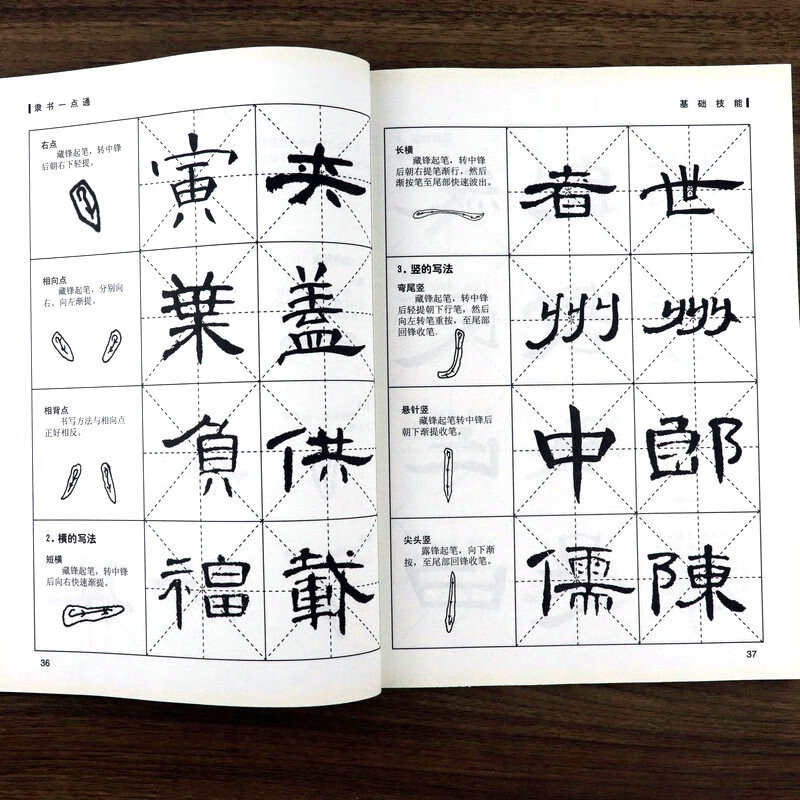 隶书一点通
右点
藏锋起笔，转中锋
后朝右下轻提。
寅 夹
相向点
藏锋起笔，分别向
右、向左渐提。
葉 蓋
相背点
书写方法与相向点
正好相反。
負 供
2．横的写法
短横
藏锋起笔，转中锋
后向右快速渐提。
福 載
36
基础技能
长横
藏锋起笔，转中锋
后朝右提笔渐行，然后
渐按笔至尾部快速波出。
者 世
3．竖的写法
弯尾竖
藏锋起笔，转中锋
后轻提朝下行笔，然后
向左转笔重按，至尾部
回锋收笔。
州 州
悬针竖
藏锋起笔转中锋后
朝下渐提收笔。
中 郎
尖头竖
露锋起笔，向下渐
按，至尾部回锋收笔。
儒 陳
37